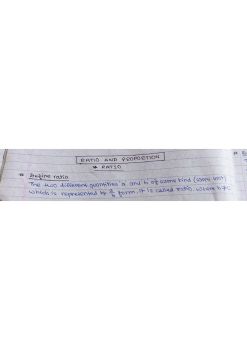 RATIO AND PROPORTION
* RATIO
* Define ratio
The two different quantities a and b of same kind (same unit)
which is represented by a/b form, it is called ratio. where b≠